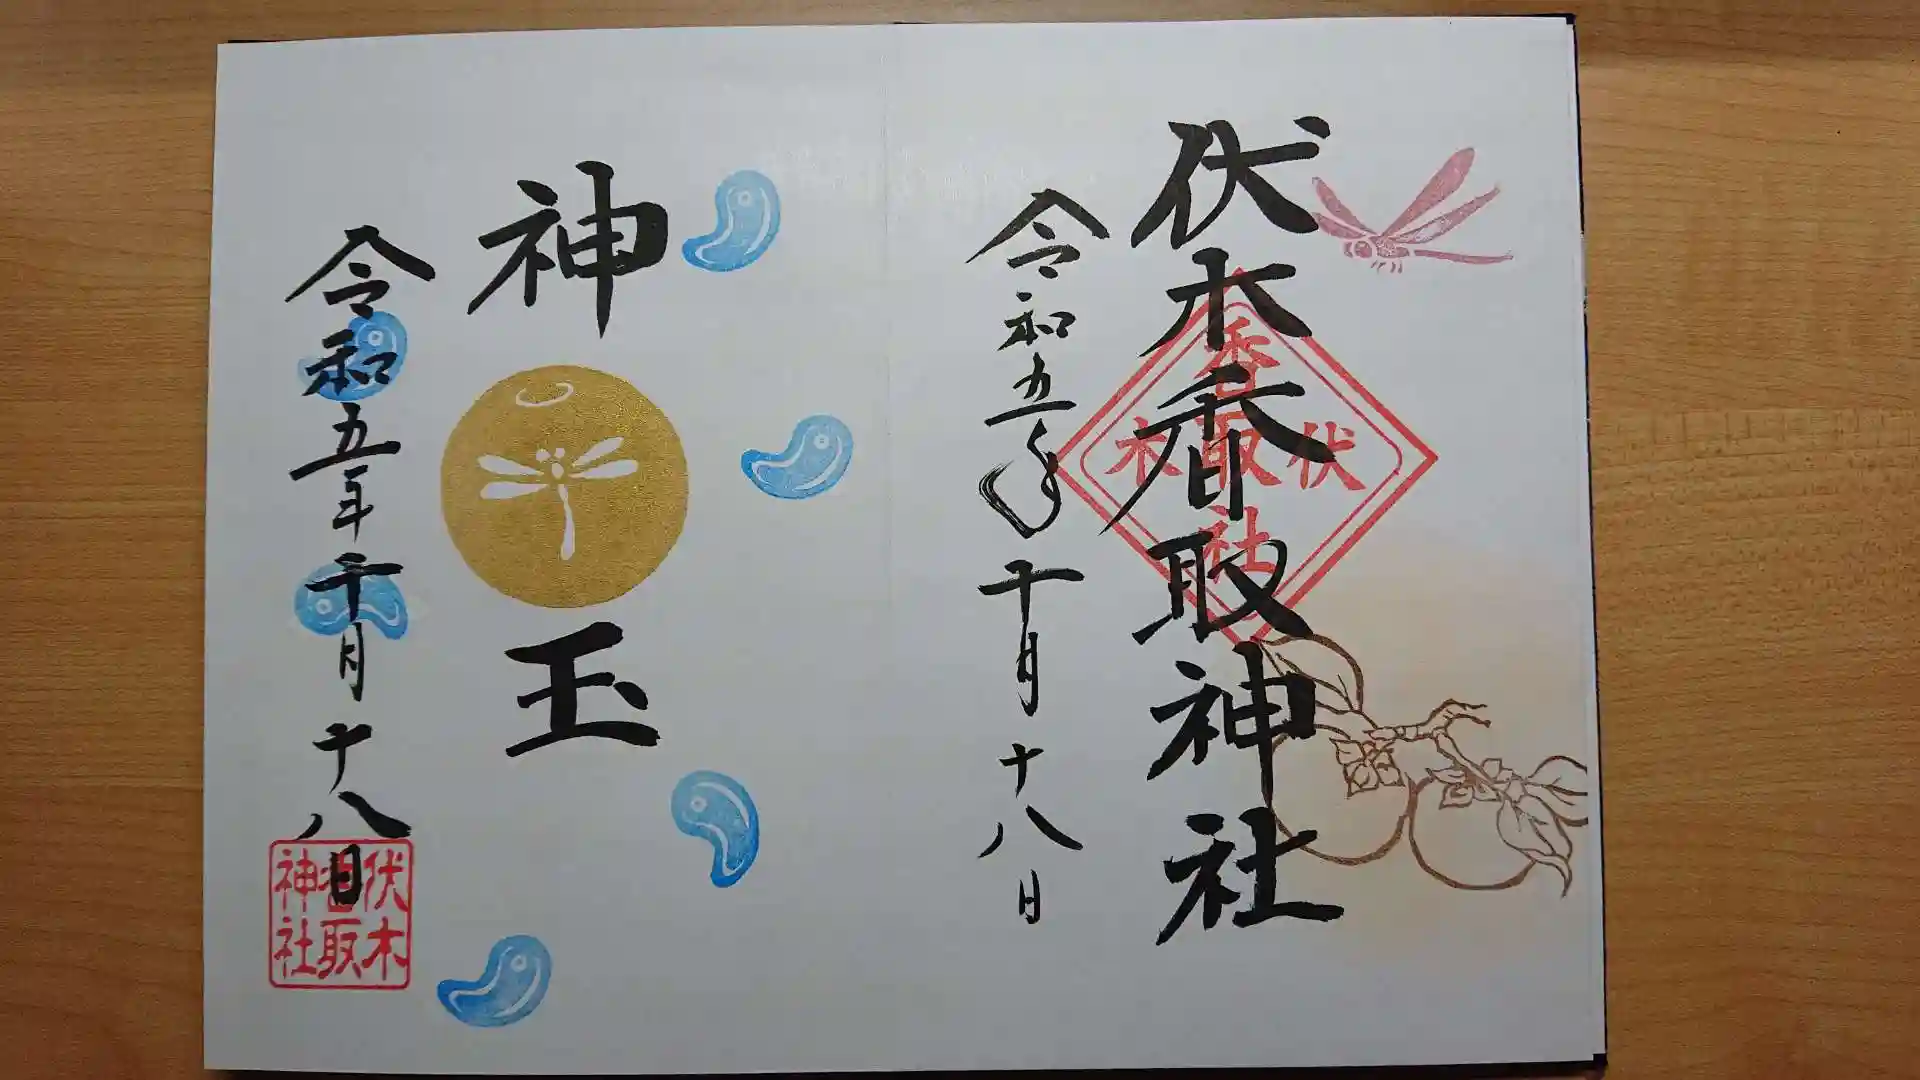 伏木香取神社
香取社
伏木
令和五年十月十八日
神玉
令和五年十月十八日
伏木
香取
神社